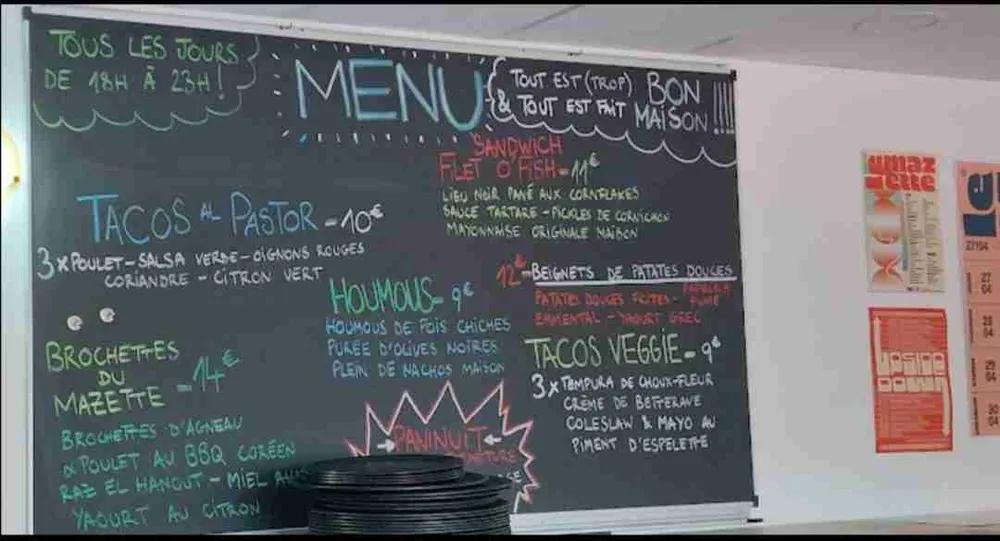 TOUS LES JOURS
DE 18H À 23H!
MENU
TOUT EST (TROP) BON
& TOUT EST FAIT MAISON!!!!
SANDWICH
FILET O'FISH - 11€
LIEU NOIR PANÉ AUX CORNFLAKES
SAUCE TARTARE - PICKLES DE CORNICHON
MAYONNAISE ORIGINALE MAISON
TACOS AL PASTOR - 10€
3 x POULET - SALSA VERDE - OIGNONS ROUGES
CORIANDRE - CITRON VERT
12€ - BEIGNETS DE PATATES DOUCES
PATATES DOUCES FRITES - PAPRIKA FUMÉ
EMMENTAL - YAOURT GREC
HOUMOUS - 9€
HOUMOUS DE POIS CHICHES
PURÉE D'OLIVES NOIRES
PLEIN DE NACHOS MAISON
TACOS VEGGIE - 9€
3 x TEMPURA DE CHOUX-FLEUR
CRÈME DE BETTERAVE
COLESLAW & MAYO AU
PIMENT D'ESPELETTE
BROCHETTES
DU
MAZETTE - 14€
BROCHETTES D'AGNEAU
& POULET AU BBQ CORÉEN
RAZ EL HANOUT - MIEL
YAOURT AU CITRON
PANINUIT
umaz
ette
le
27/04
27
04
28
04
29
04
upside
down